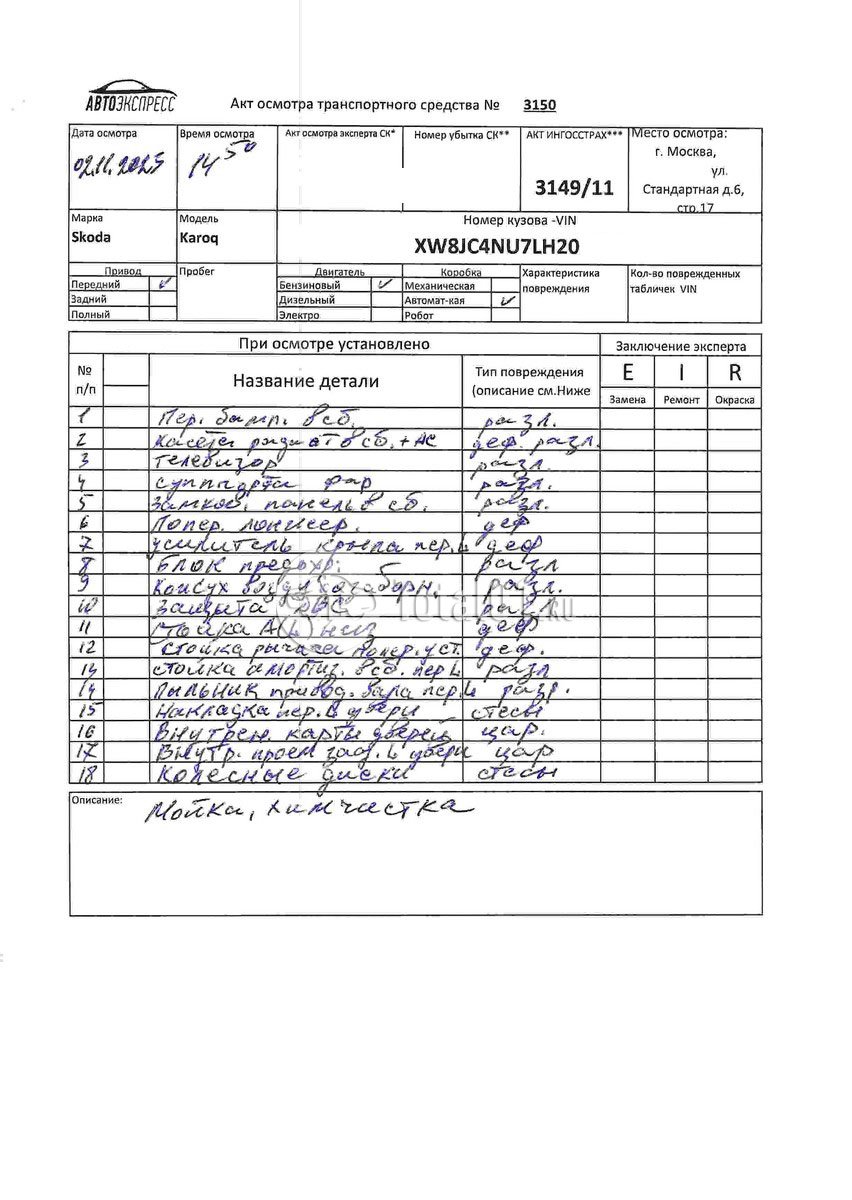 АВТОЭКСПРЕСС
Акт осмотра транспортного средства № 3150
Дата осмотра Время осмотра Акт осмотра эксперта СК* Номер убытка СК** АКТ ИНГОССТРАХ*** Место осмотра:
02.11.2025 14 50 3149/11 г. Москва,
ул.
Стандартная д.6,
стр.17
Марка Модель Номер кузова -VIN
Skoda Karoq XW8JC4NU7LH20
Привод Пробег Двигатель Коробка Характеристика повреждения Кол-во поврежденных табличек VIN
Передний Бензиновый Механическая
Задний Дизельный Автомат-кая
Полный Электро Робот
При осмотре установлено Заключение эксперта
№ п/п Название детали Тип повреждения (описание см.Ниже E I R
Замена Ремонт Окраска
1 Пер. бамп. в сб. разл.
2 Касета радиат в сб. + АС деф. разл.
3 телевизор разл.
4 суппорта фар разл.
5 Замков. панель в сб. разл.
6 Попер. лонжер. деф
7 усилитель крыла пер. L деф
8 Блок предохр. разл
9 Кожух воздухозаборн. разл.
10 Защита ДВС разл
11 деф
12 Стойка рычага попер. уст. деф.
13 стойка амортиз. в сб. пер L разл
14 Пыльник привод. вала пер. L разр.
15 Накладка пер. L двери стесы
16 Внутрен. карты дверей цар.
17 Внутр. проем зад. L двери цар
18 Колесные диски стесы
Total01.RU
Описание: Мойка, химчистка